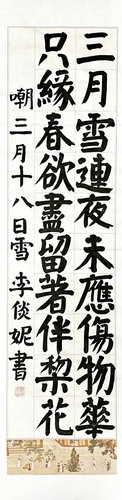 三月雪連夜未應傷物華
只緣春欲盡留著伴梨花
嘲三月十八日雪 李倓妮書